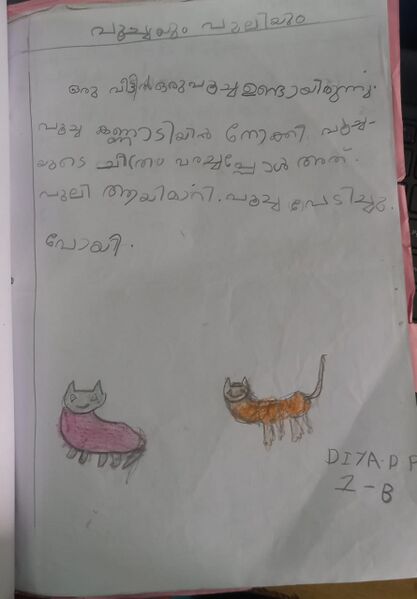 പൂച്ചയും പുലിയും
ഒരു വീട്ടിൽ ഒരു പൂച്ച ഉണ്ടായിരുന്നു.
പൂച്ച കണ്ണാടിയിൽ നോക്കി പൂച്ച-
യുടെ ചിത്രം വരച്ചപ്പോൾ അത്.
പുലി ആയിമാറി. പൂച്ച പേടിച്ചു
പോയി.
DIYA.D P
1-B